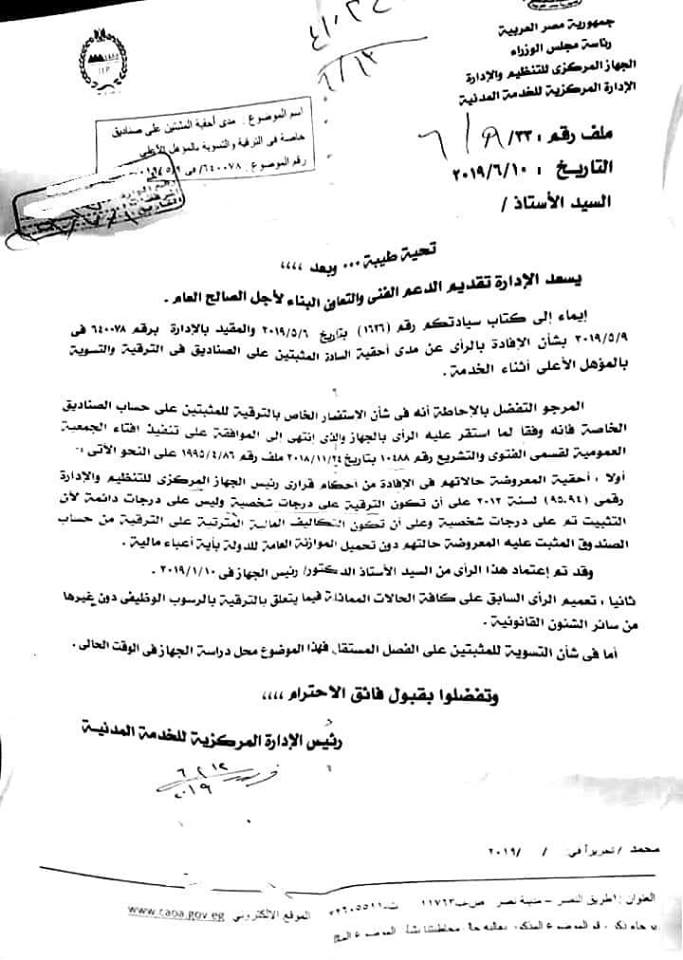 جمهورية مصر العربية
رئاسة مجلس الوزراء
الجهاز المركزى للتنظيم والإدارة
الإدارة المركزية للخدمة المدنية
ملف رقم : ٣٣/ ٨/ ٦
التاريخ : ٢٠١٩/٦/١٠
السيد الأستاذ /
اسم الموضوع : مدى أحقية المثبتين على صناديق
خاصة فى الترقية والتسوية بالمؤهل الأعلى
رقم الموضوع : ٦٤٠٠٧٨/ فى ٢٠١٩٤٥/٩
تحية طيبة ... وبعد ،،،،
يسعد الإدارة تقديم الدعم الفنى والتعاون البناء لأجل الصالح العام .
إيماء إلى كتاب سيادتكم رقم (١٦٣٦) بتاريخ ٢٠١٩/٥/٦ والمقيد بالإدارة برقم ٦٤٠٠٧٨ فى
٢٠١٩/٥/٩ بشأن الإفادة بالرأى عن مدى أحقية السادة المثبتين على الصناديق فى الترقية والتسوية
بالمؤهل الأعلى أثناء الخدمة .
المرجو التفضل بالإحاطة أنه فى شأن الاستفسار الخاص بالترقية للمثبتين على حساب الصناديق
الخاصة فانه وفقا لما استقر عليه الرأى بالجهاز والذى إنتهى إلى الموافقة على تنفيذ افتاء الجمعية
العمومية لقسمى الفتوى والتشريع رقم ١٠٤٨٨ بتاريخ ٢٠١٨/١١/٢٤ ملف رقم ١٩٩٥/٤/٨٦ على النحو الآتى :-
أولا : أحقية المعروضة حالاتهم فى الإفادة من أحكام قرارى رئيس الجهاز المركزى للتنظيم والإدارة
رقمى (٩٥،٩٤) لسنة ٢٠١٢ على أن تكون الترقية على درجات شخصية وليس على درجات دائمة لأن
التثبيت تم على درجات شخصية وعلى أن تكون التكاليف المالية المترتبة على الترقية من حساب
الصندوق المثبت عليه المعروضة حالتهم دون تحميل الموازنة العامة للدولة بأية أعباء مالية .
وقد تم إعتماد هذا الرأى من السيد الأستاذ الدكتور/ رئيس الجهاز فى ٢٠١٩/١/١٠ .
ثانيا : تعميم الرأى السابق على كافة الحالات المماثلة فيما يتعلق بالترقية بالرسوب الوظيفى دون غيرها
من سائر الشئون القانونية .
أما فى شأن التسوية للمثبتين على الفصل المستقل فهذا الموضوع محل دراسة الجهاز فى الوقت الحالى .
وتفضلوا بقبول فائق الاحترام ،،،،
رئيس الإدارة المركزية للخدمة المدنية
٢٠١٩
محمد / تحريراً فى: / / ٢٠١٩
العنوان : طريق النصر – مدينة نصر ص.ب ١١٧٦٣
الموقع الالكترونى www.caoa.gov.eg